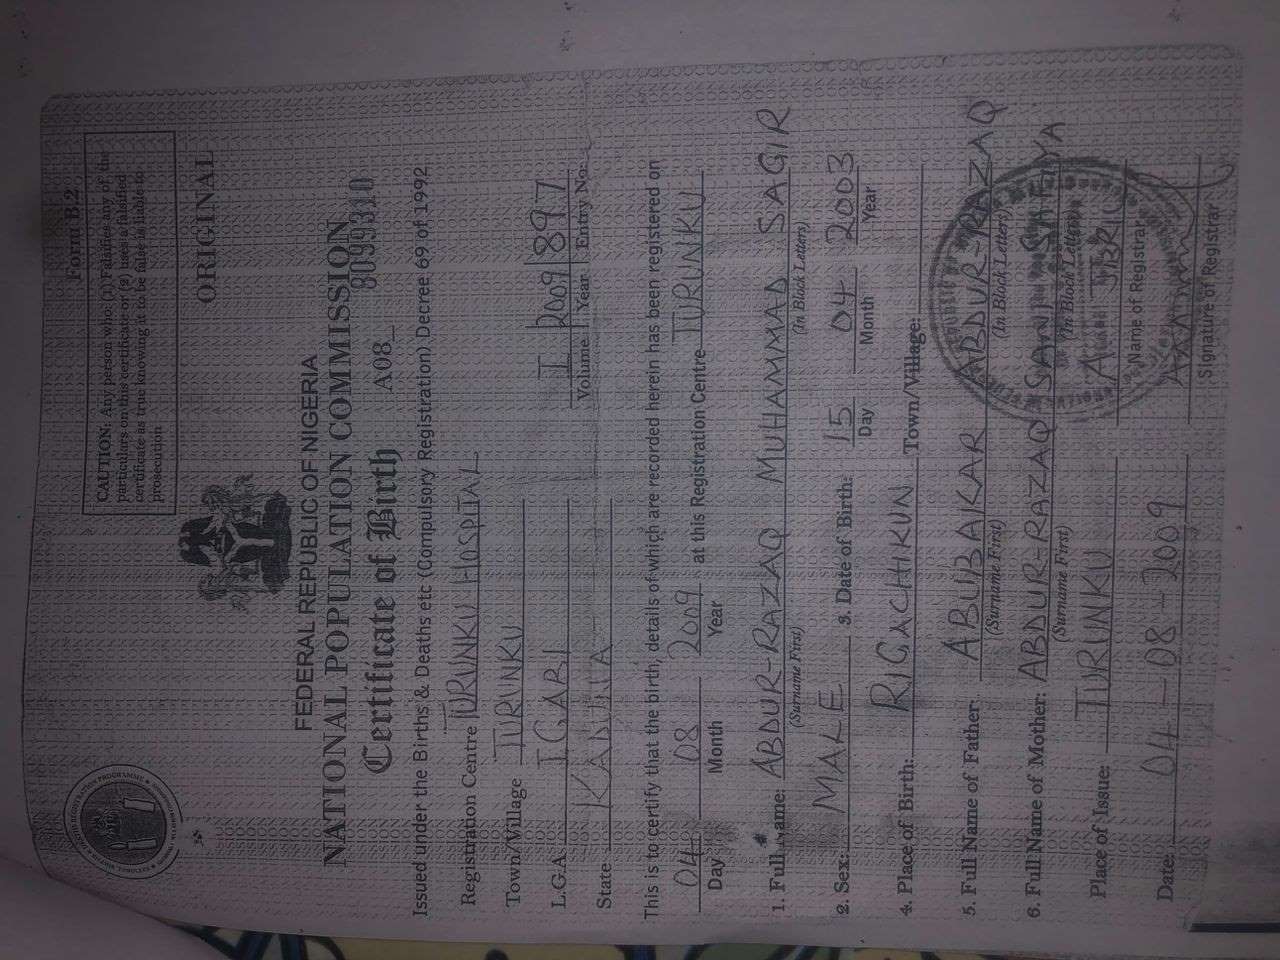 Form B.2
CAUTION: Any person who: (1) Falsifies any of the
particulars on this certificate or (g) uses a falsified
certificate as true knowing it to be false is liable to
prosecution
ORIGINAL
FEDERAL REPUBLIC OF NIGERIA
NATIONAL POPULATION COMMISSION
Certificate of Birth A08 8099310
Issued under the Births & Deaths etc (Compulsory Registration) Decree 69 of 1992
Registration Centre TURUNKU HOSPITAL
Town/Village TURUNKU
L.G.A. IGABI
State KADUNA
I 2009 897
Volume Year Entry No:
This is to certify that the birth, details of which are recorded herein has been registered on
04 08 2009 at this Registration Centre TURUNKU
Day Month Year
1. Full Name: ABDUR-RAZAQ MUHAMMAD SAGIR
(Surname First) (In Block Letters)
2. Sex: MALE 3. Date of Birth: 15 04 2003
Day Month Year
4. Place of Birth: RIGACHIKUN Town/Village:
5. Full Name of Father: ABUBAKAR ABDUR-RAZAQ
(Surname First) (In Block Letters)
6. Full Name of Mother: ABDUR-RAZAQ SANI
(Surname First) (In Block Letters)
Place of Issue: TURUNKU A JIBRIL
Name of Registrar
Date: 04-08-2009
Signature of Registrar